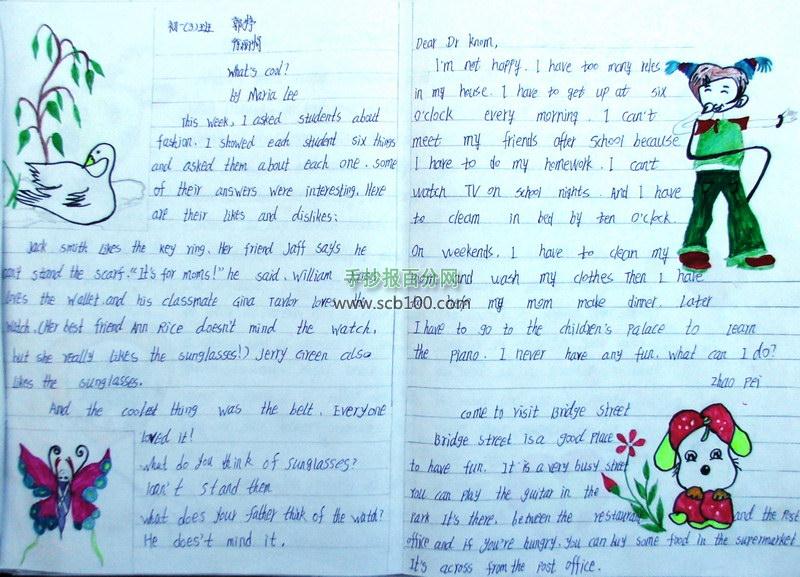 初一(3)班
What's cool?
by Maria Lee
This week, I asked students about
fashion. I showed each student six things
and asked them about each one. some
of their answers were interesting. Here
are their likes and dislikes:
Jack smith likes the key ring. Her friend Jaff says he
can't stand the scarf. "It's for moms!" he said. William
loves the wallet and his classmate Gina Taylor loves the
watch. (Her best friend Ann Rice doesn't mind the watch,
but she really likes the sunglasses!) Jerry Green also
likes the sunglasses.
And the coolest thing was the belt. Everyone
loved it!
what do you think of sunglasses?
I can't stand them
what does your father think of the watch?
He does't mind it.
Dear Dr know,
I'm not happy. I have too many rules
in my house. I have to get up at six
o'clock every morning. I can't
meet my friends after school because
I have to do my homework. I can't
watch TV on school nights. And I have
to in bed by ten o'clock.
On weekends. I have to clean my
and wash my clothes Then I have
my mom make dinner. Later
I have to go to the children's Palace to learn
the piano. I never have any fun. what can I do?
Zhao Pei
come to visit Bridge street
Bridge street is a good place
to have fun. It is a very busy street
You can play the guitar in the
park It's there, between the restaurant and the Post
office and if you're hungry. you can buy some food in the supermarket
It's across from the post office.
手抄报百分网
www.scb100.com